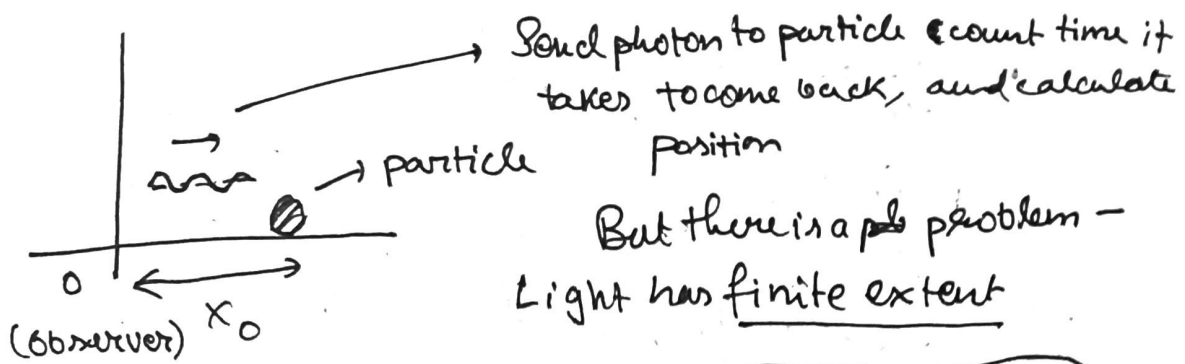 Send photon to particle & count time it
takes to come back, and calculate
position
particle
But there is a problem -
Light has finite extent
0
x₀
(observer)